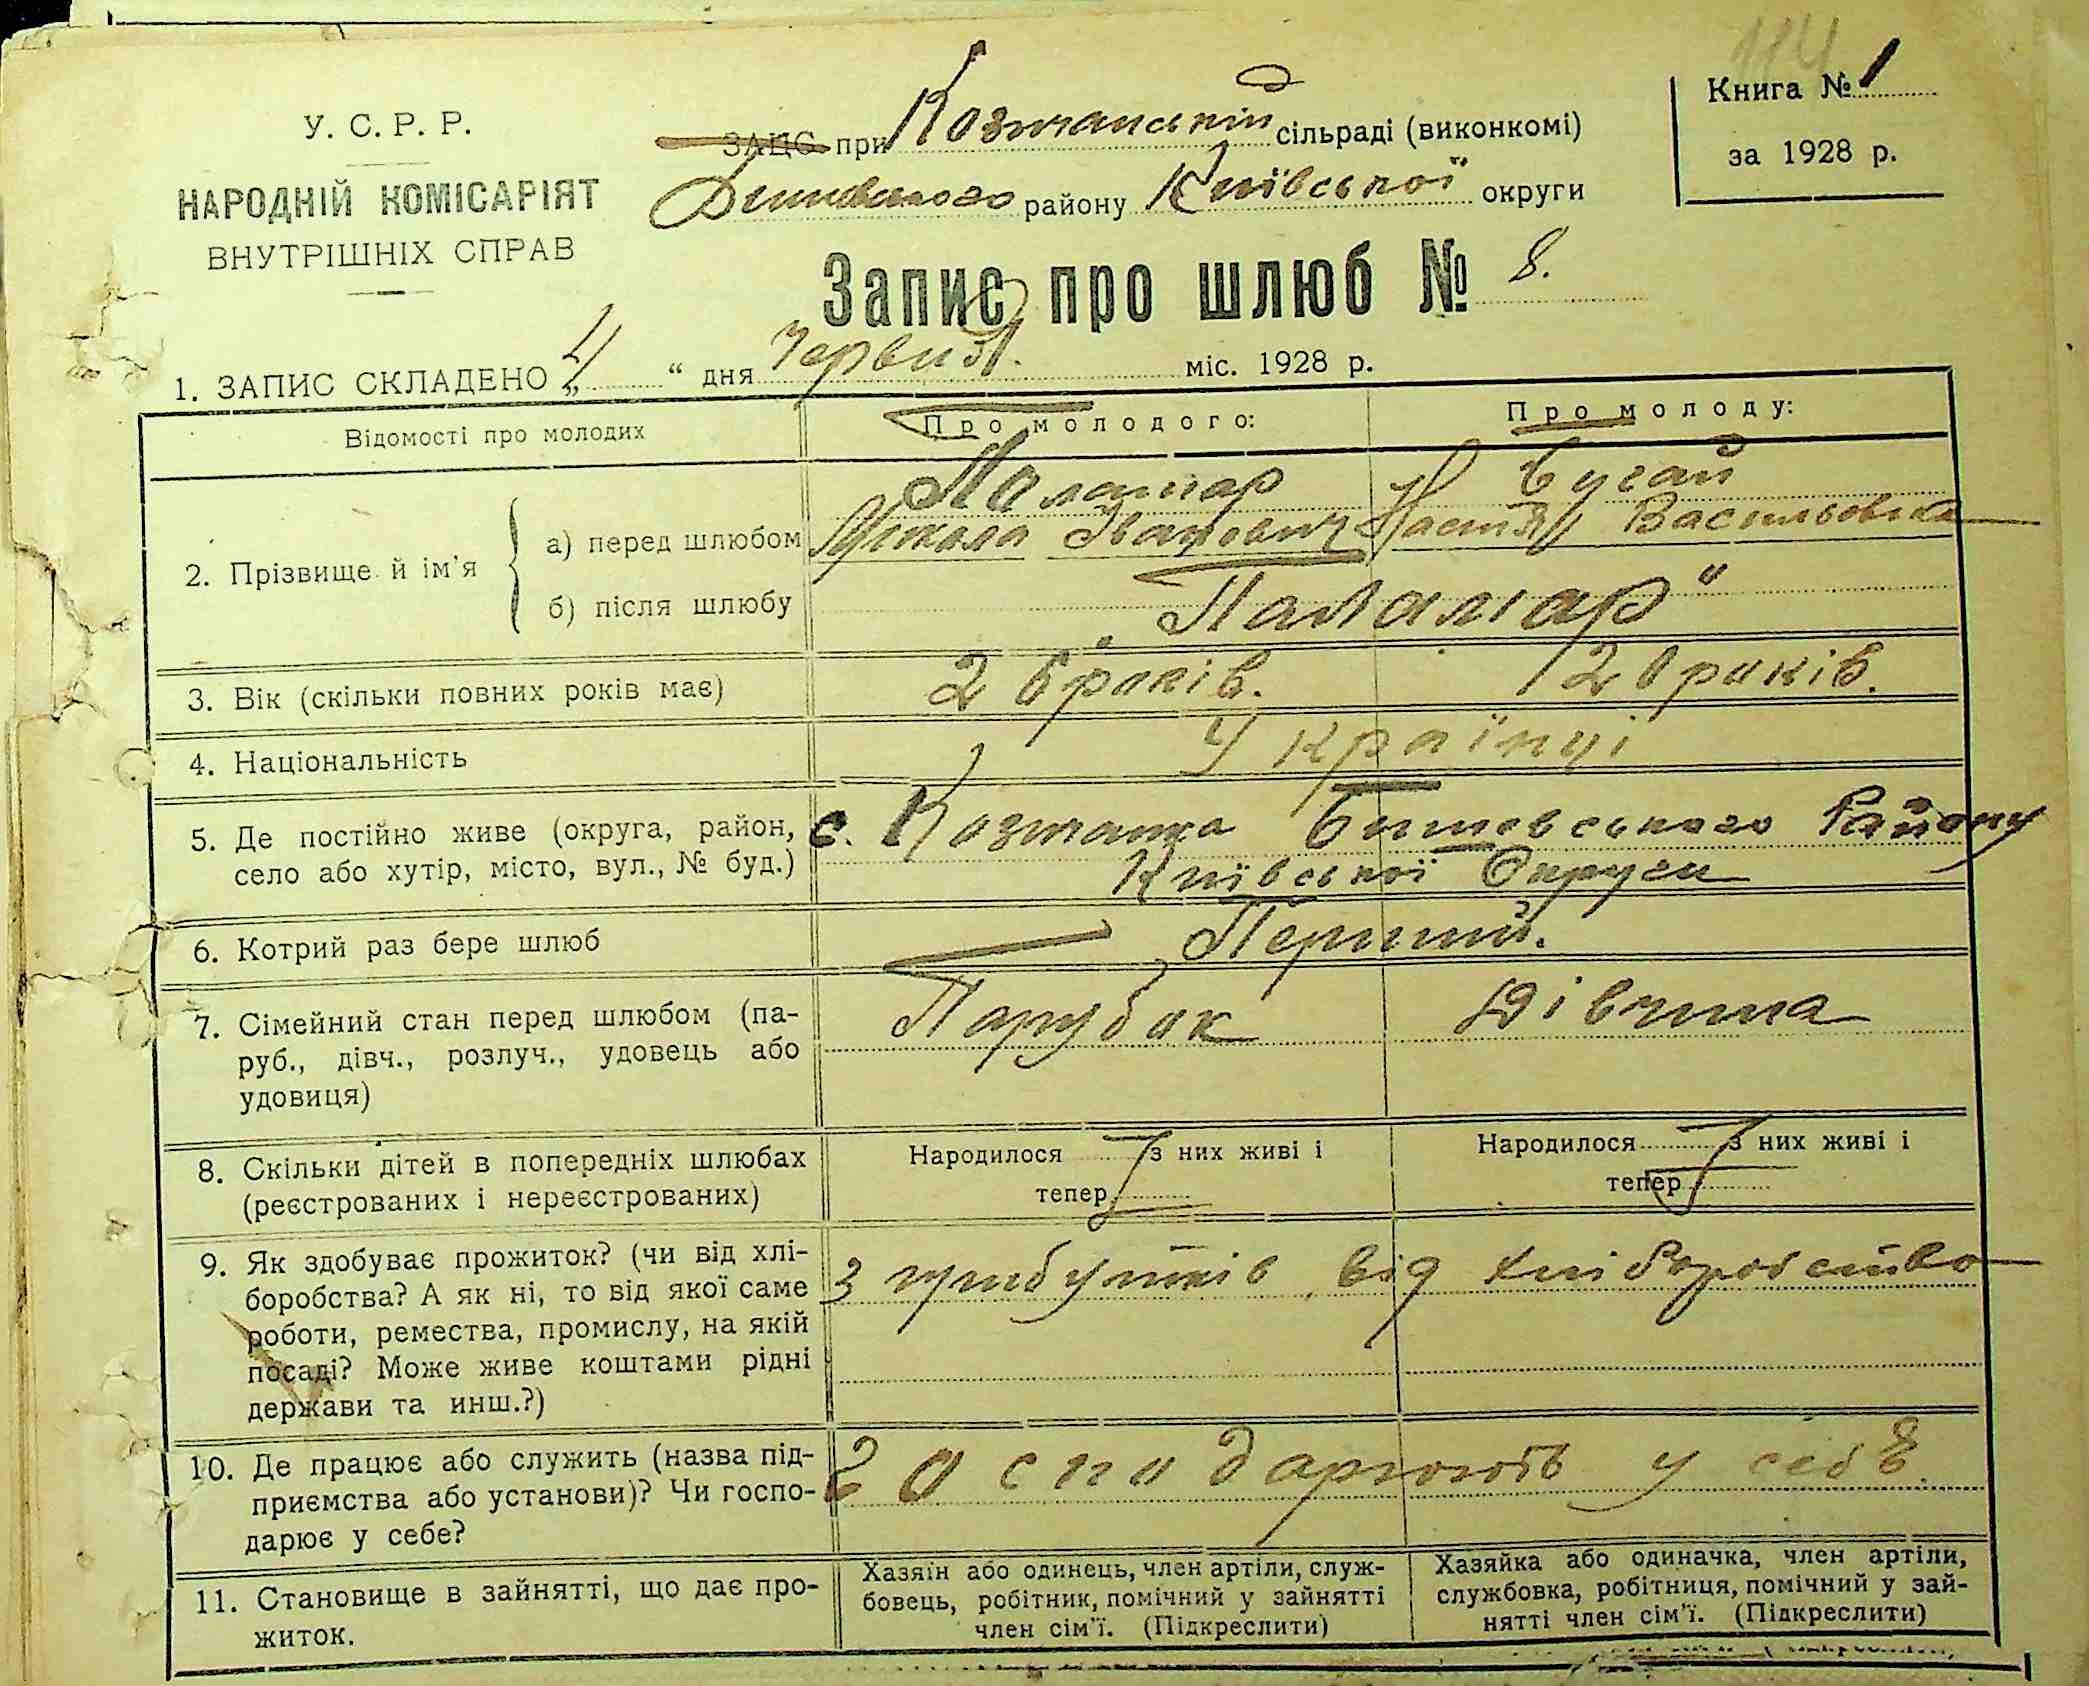 114
У. С. Р. Р.
НАРОДНІЙ КОМІСАРІЯТ
ВНУТРІШНІХ СПРАВ
ЗАЦС при Козичанській сільраді (виконкомі)
району Київської округи
Книга № 1
за 1928 р.
Запис про шлюб № 8.
1. ЗАПИС СКЛАДЕНО „4“ дня Червня міс. 1928 р.
Відомості про молодих
Про молодого:
Про молоду:
2. Прізвище й ім'я
а) перед шлюбом
Паламар
Микола Іванович
Бугай
Настя Васильовна
б) після шлюбу
„Паламар“
3. Вік (скільки повних років має)
26 років.
20 років.
4. Національність
Українці
5. Де постійно живе (округа, район,
село або хутір, місто, вул., № буд.)
с. Козичанка Бишевського Району
Київської Округи
6. Котрий раз бере шлюб
Перший.
7. Сімейний стан перед шлюбом (па-
руб., дівч., розлуч., удовець або
удовиця)
Парубок
Дівчина
8. Скільки дітей в попередніх шлюбах
(реєстрованих і нереєстрованих)
Народилося з них живі і
тепер
Народилося з них живі і
тепер
9. Як здобуває прожиток? (чи від хлі-
боробства? А як ні, то від якої саме
роботи, ремества, промислу, на якій
посаді? Може живе коштами рідні
держави та инш.?)
З прибутків від хліборобства
10. Де працює або служить (назва під-
приємства або установи)? Чи госпо-
дарює у себе?
Господарюють у себе.
11. Становище в зайнятті, що дає про-
житок.
Хазяїн або одинець, член артіли, служ-
бовець, робітник, помічний у зайнятті
член сім'ї. (Підкреслити)
Хазяйка або одиначка, член артіли,
службовка, робітниця, помічний у зай-
нятті член сім'ї. (Підкреслити)